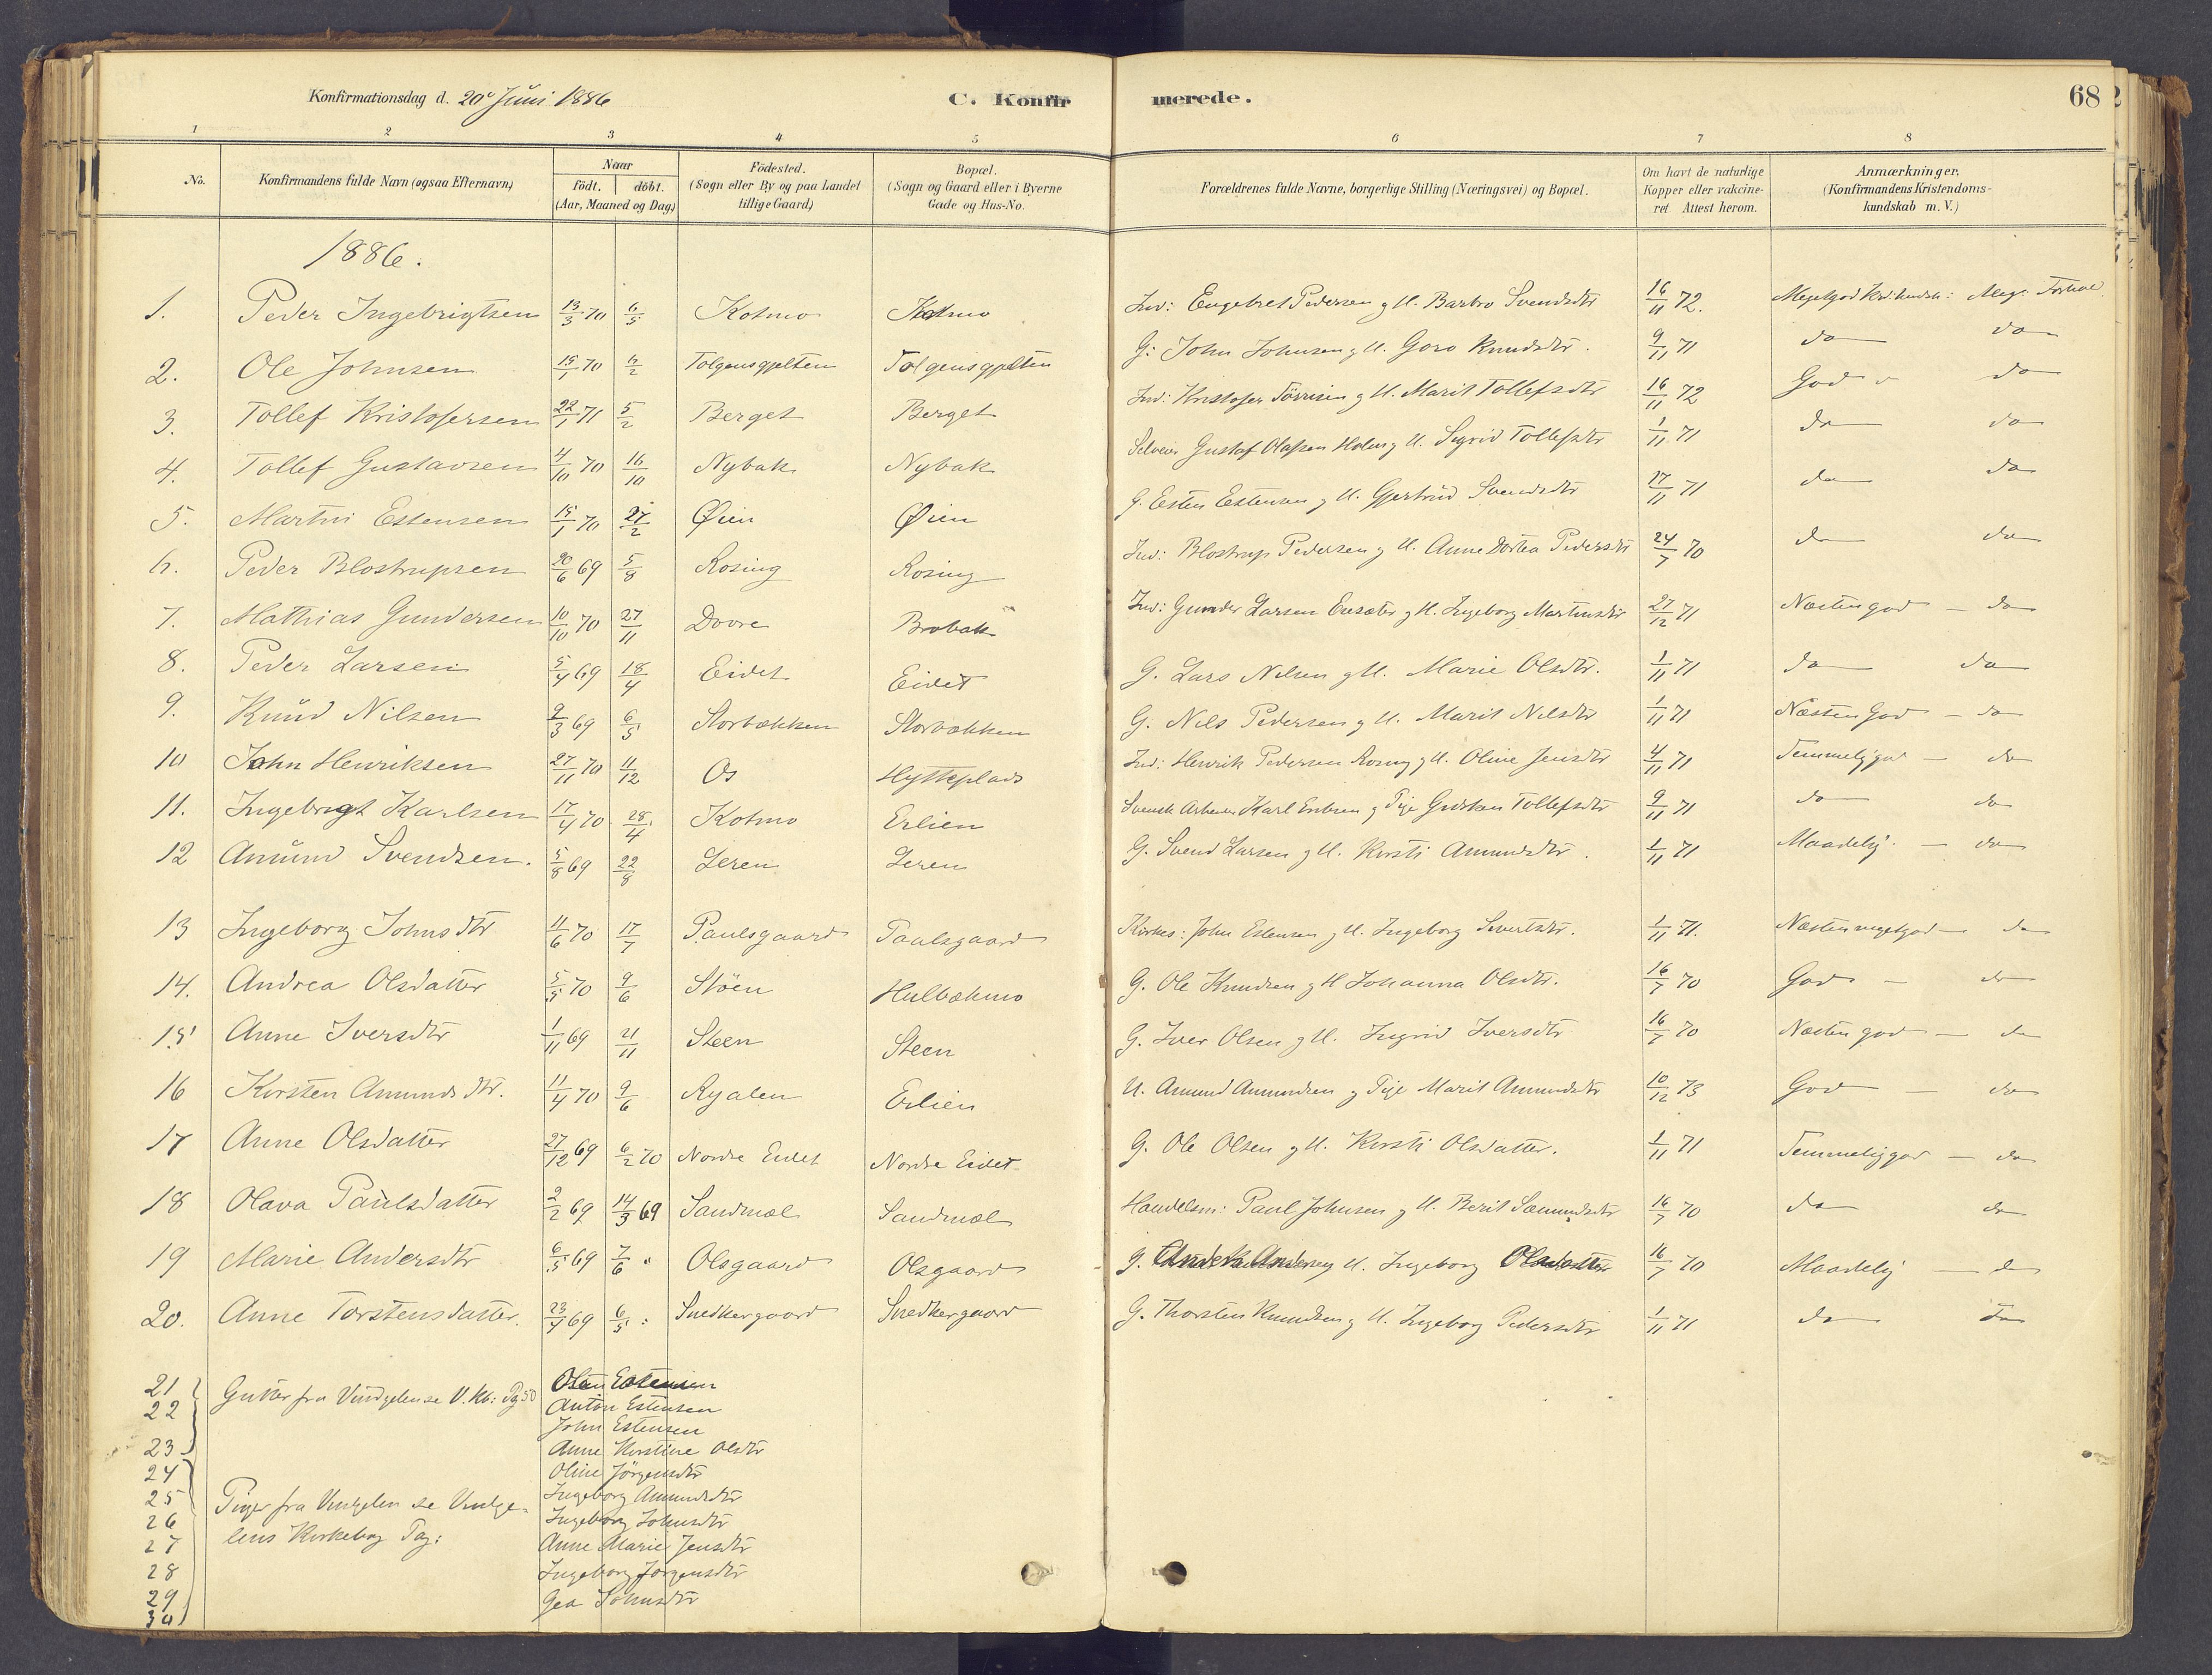 Konfirmationsdag d. 20de Juni 1886 C. Konfir merede. 68
1 2 3 4 5 6 7 8
No. Konfirmandens fulde Navn (ogsaa Efternavn) Naar födt. döbt. (Aar, Maaned og Dag.) Födested. (Sogn eller By og paa Landet tillige Gaard) Bopæl. (Sogn og Gaard eller i Byerne Gade og Hus-No. Forældrenes fulde Navne, borgerlige Stilling (Næringsvei) og Bopæl. Om havt de naturlige Kopper eller vakcineret Attest herom. Anmærkninger. (Konfirmandens Kristendomskundskab m. V.)
1886.
1. Peder Ingebrigtsen 13/3 70 6/5 Kotmo Kotmo Ind: Engebret Pedersen g H. Barbro Svendsdtr 16/11 72. Megetgod Kr: kundsk: Meg: Forhold
2. Ole Johnsen 15/1 70 6/2 Tolgensgjelten Tolgensgjelten G: John Johnsen g H. Goro Knudsdtr. 9/11 71 do do
3. Tollef Kristofersen 22/1 71 5/2 Berget Berget Ind: Kristofer Törrisen g H. Marit Tollefsdtr 16/11 72 God do
4. Tollef Gustavsen 4/10 70 16/10 Nybak Nybak Selveier Gustaf Olafsen Holm g H. Sigrid Tollefsdtr 1/11 71 do do
5. Martin Estensen 15/1 70 27/2 Øien Øien G. Esten Estensen g H. Gjertrud Svendsdtr 17/11 71 do do
6. Peder Blostrupsen 20/6 69 5/8 Rosing Rosing Ind: Blostrup Pedersen g H. Anne Dortea Pedersdtr 24/7 70 do do
7. Mathias Gundersen 10/10 70 27/11 Dovre Brobak Ind: Gunder Larsen Ensæter g H. Ingeborg Martinsdtr 27/12 71 Næstengod do
8. Peder Larsen 5/4 69 18/4 Eidet Eidet G. Lars Nilsen g H. Marie Olsdtr. 1/11 71 do do
9. Knud Nilsen 9/3 69 6/5 Storbækken Storbækken G. Nils Pedersen g H. Marit Nilsdtr 1/11 71 Næsten God - do
10 John Henriksen 27/11 70 11/12 Os Hytteplads Ind: Henrik Pedersen Rosing g H. Oline Jensdtr 4/11 71 Temmeliggod - do
11. Ingebrigt Karlsen 17/4 70 28/4 Kotmo Erlien Svensk Arbeider Karl g Pige Tollefsdtr 9/11 71 do do
12 Amund Svendsen. 5/8 69 22/8 Leren Leren G. Svend Larsen g H. Kirsti Amundsdtr. 1/11 71 Maadelig. - do
13 Ingeborg Johnsdtr 11/6 70 17/7 Paulsgaard Paulsgaard Kirkes: John Estensen g H. Ingeborg Sivertsdtr. 1/11 71. Næsten megetgod do
14. Andrea Olsdatter 5/5 70 9/6 Stöen Hulbækmo G. Ole Knudsen g H Johanna Olsdtr. 16/7 70 God - do
15 Anne Iversdtr 1/11 69 21/11 Steen Steen G. Iver Olsen g H. Ingrid Iversdtr 16/7 70 Næsten god - do
16 Kirsten Amundsdtr. 11/4 70 9/6 Ryalen Erlien U. Amund Amundsen g Pige Marit Amundsdtr 10/12 73 God - do
17 Anne Olsdatter 27/12 69 6/2 70 Nordre Eidet Nordre Eidet G. Ole Olsen g H. Kirsti Olsdatter. 1/11 71 Temmeliggod - do
18 Olava Paulsdatter 2/2 69 14/3 69 Sandmæl Sandmæl Handelsm: Paul Johnsen g H. Berit Sæmundsdtr 16/7 70 do do
19 Marie Andersdtr 6/5 69 7/6 " Olsgaard Olsgaard G. Anders Andersen g H. Ingeborg Olsdatter 16/7 70 Maadelig - do
20. Anne Torstensdatter. 23/4 69 6/5 : Snedkergaard Snedkergaard G. Thorsten Knudsen g H. Ingeborg Pedersdtr 1/11 71 do do
21 Gutter fra Vingelen se V. Kb: Pag 50 Olen Estensen
22 Anton Estensen
John Estensen
23 Anne Kirstine Olsdtr
24 Oline Jörgensdtr
25 Piger fra Vingelen se Vinge- Ingeborg Amundsdtr
26 lens Kirkebog Pag: Ingeborg Johnsdtr
27 Anne Marie Jensdtr
28 Ingeborg Jörgensdtr
29 Gea Johnsdtr
30